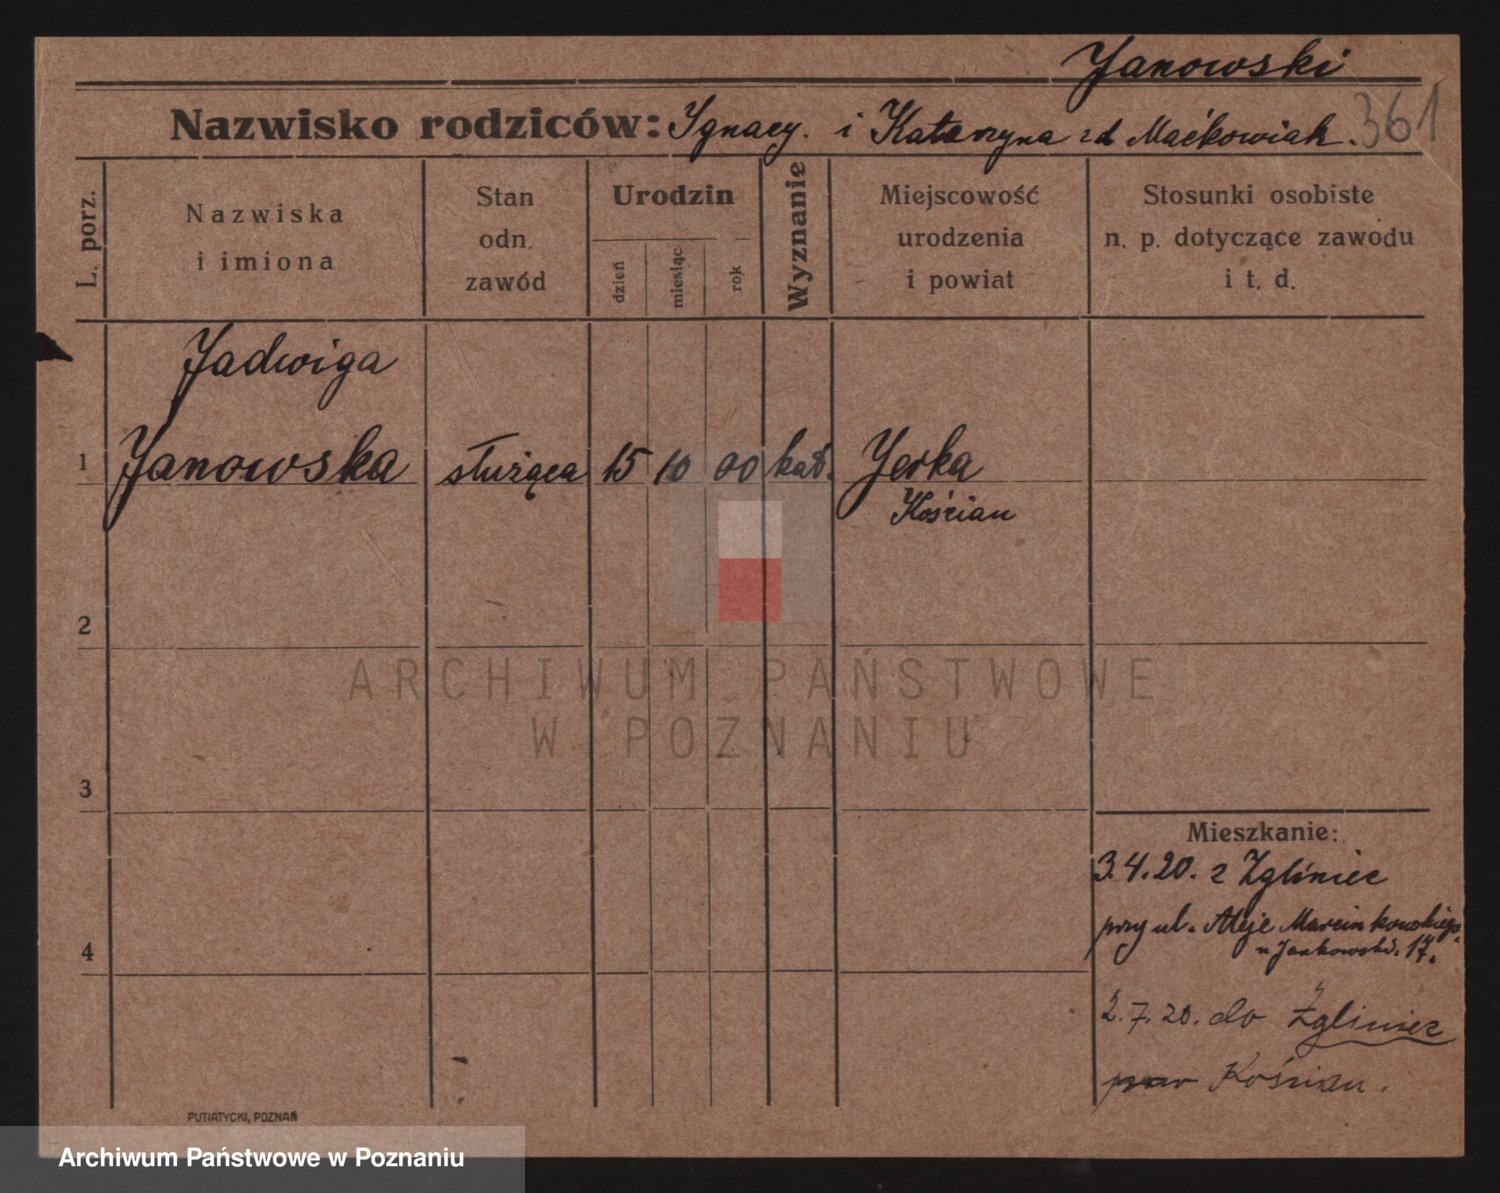 Janowski
Nazwisko rodziców: Ignacy. i Katarzyna zd Maćkowiak. 361
L. porz.
Nazwiska
i imiona
Stan
odn.
zawód
Urodzin
dzień
miesiąc
rok
Wyznanie
Miejscowość
urodzenia
i powiat
Stosunki osobiste
n. p. dotyczące zawodu
i t. d.
Jadwiga
1 Janowska służąca 15 10 00 kat. Jerka
Kościan
2
ARCHIWUM PAŃSTWOWE
W POZNANIU
3
Mieszkanie:
3.4.20. z Zgliniec
przy ul. Aleje Marcinkowskiego
u 17.
4
2.7.20. do Zgliniec
pow Kościan.
PUTIATYCKI, POZNAŃ
Archiwum Państwowe w Poznaniu